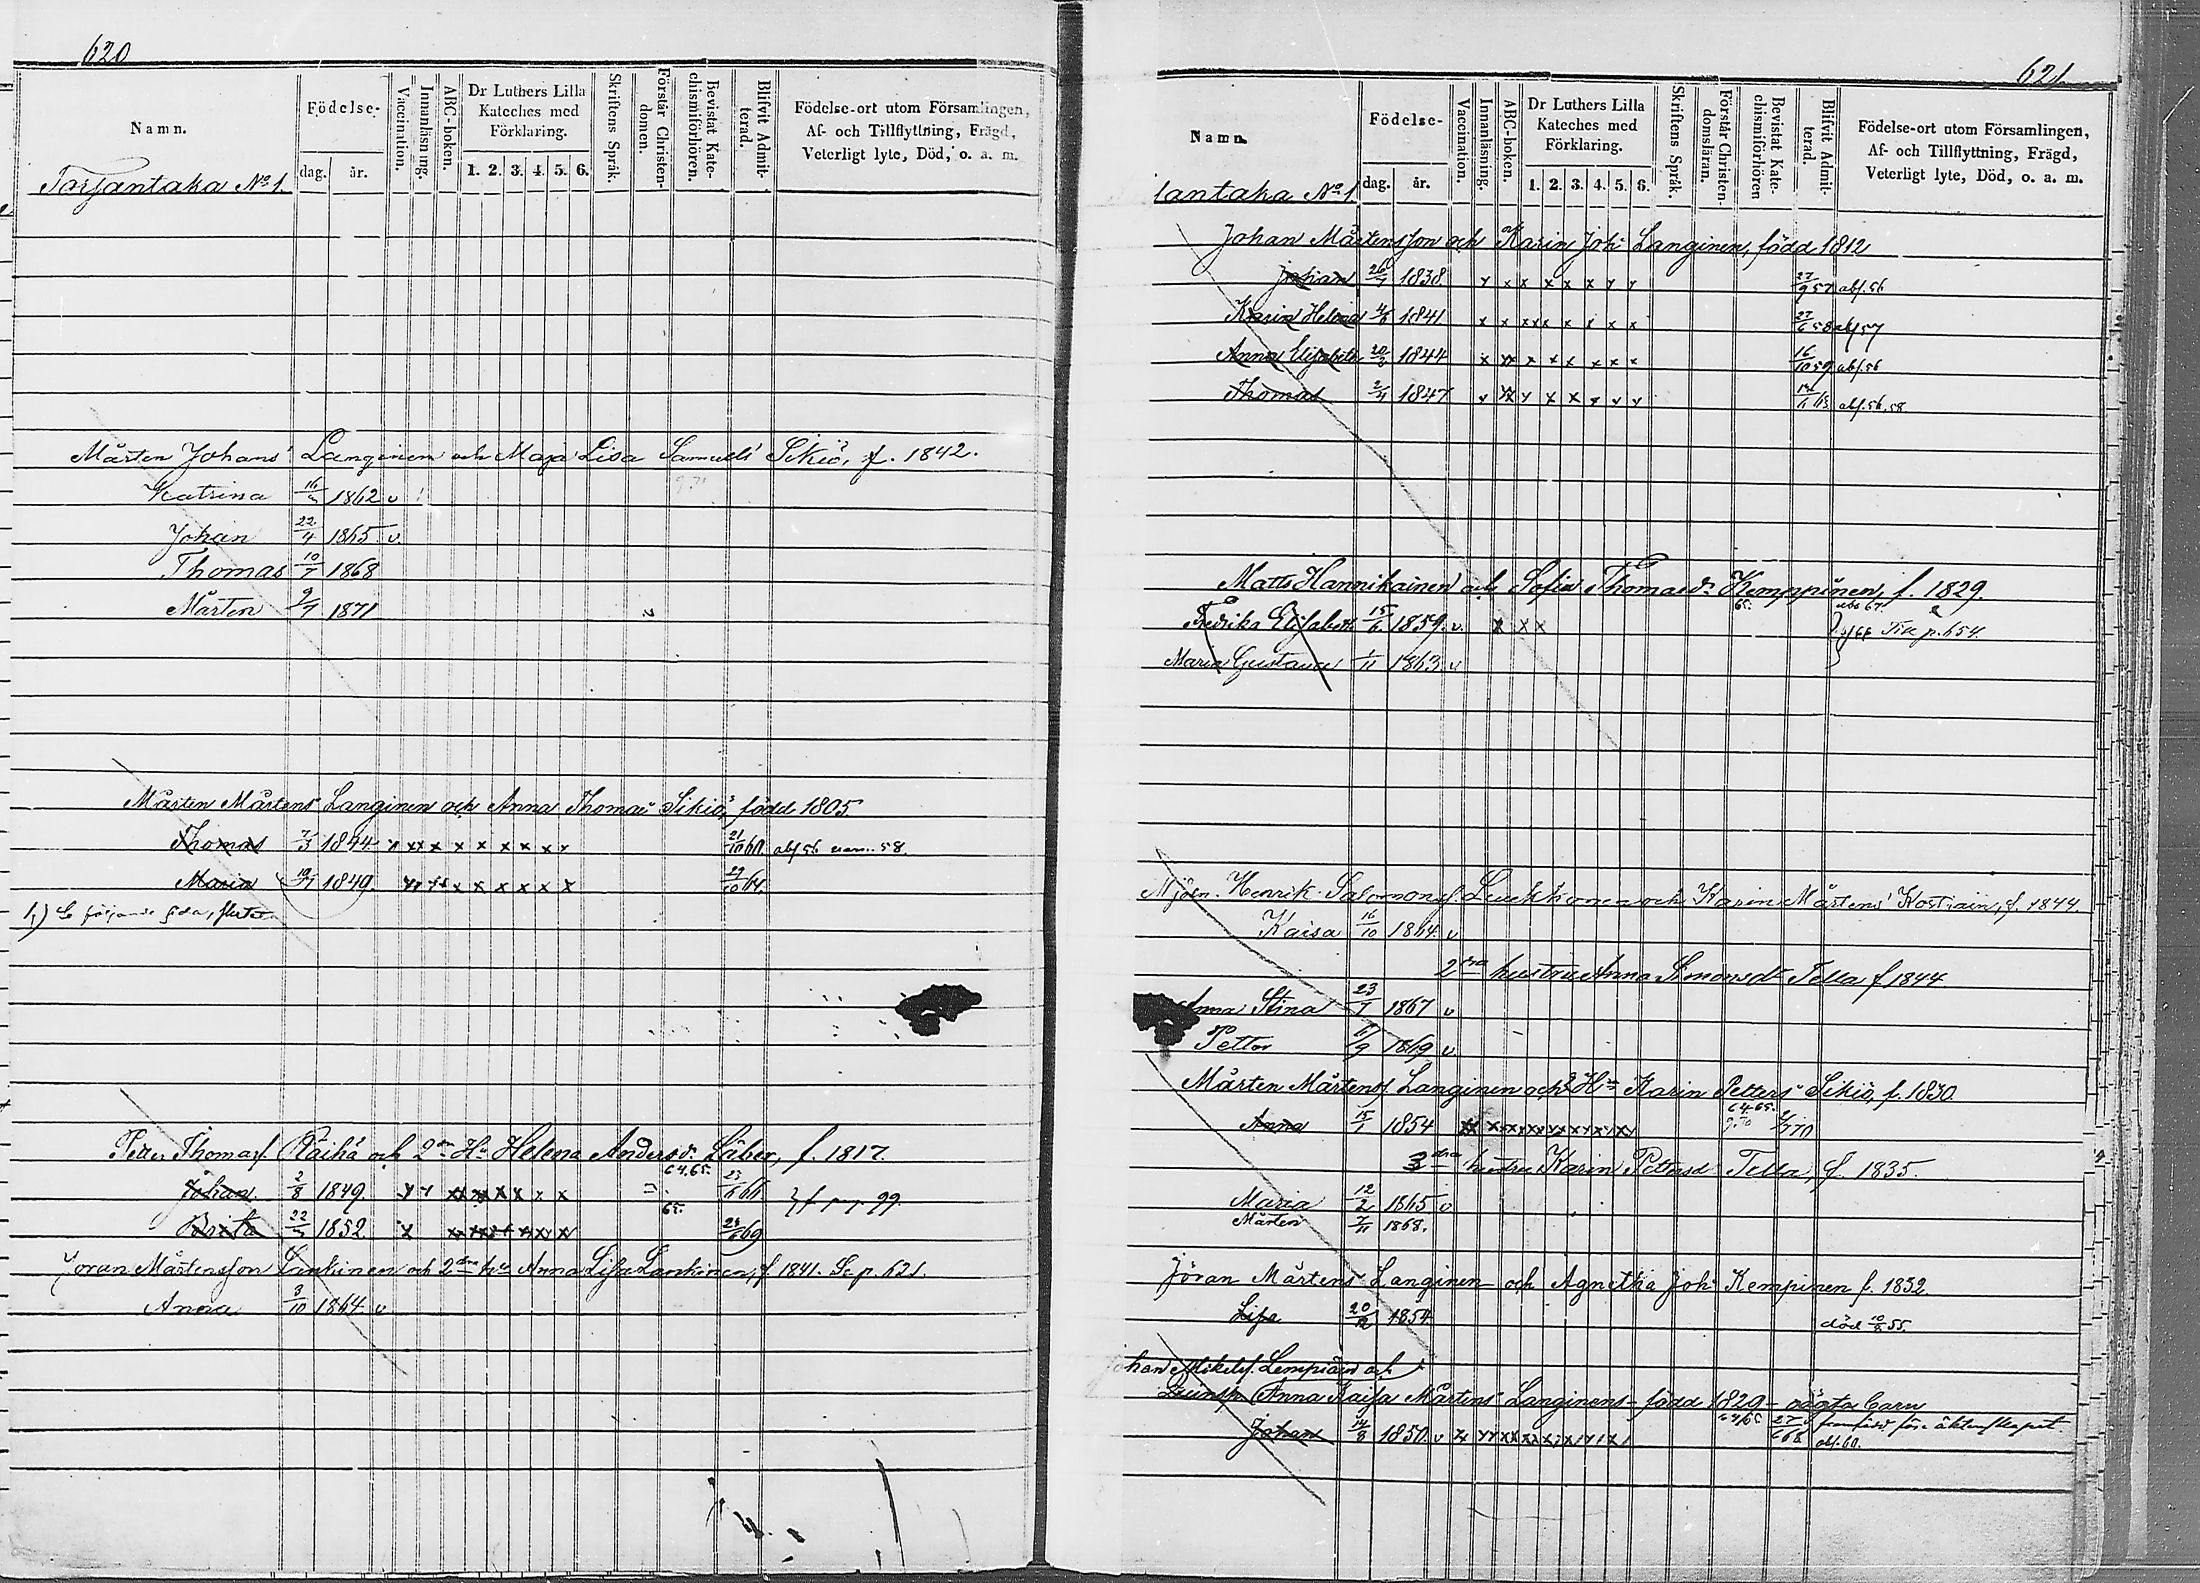 620
Namn.
Födelse-
dag. år.
Vaccination.
Innanläsning.
ABC-boken.
Dr Luthers Lilla Kateches med Förklaring.
1. 2. 3. 4. 5. 6.
Skriftens Språk.
Förstår Christendomen.
Bevistat Katechismiförhören.
Blifvit Admitterad.
Födelse-ort utom Församlingen,
Af- och Tillflyttning, Frägd,
Veterligt lyte, Död, o. a. m.
Tarjantaka No 1.
Mårten Johans Langinen och Maja Lisa Samuels Sikiö, f. 1842.
Katrina 1862 v
Johan 22/4 1865 v.
Thomas 10/7 1868
Mårten 9/7 1871
Mårten Mårtens Langinen och Anna Thomas Sikiö, född 1805.
Thomas 7/3 1844 x xx x x x x x x x 21/10 60 abs 56 58.
Maria 1849. x x x x x x 29/10 64.
följande sida,
Petter Thomass. Räihä och 2 H. Helena Andersd. Läber, f. 1817.
Johan. 2/8 1849. 64.65. 66 99.
Brita 1852. x 65. 69
Jöran Mårtensson Linkinen och 2dra h. Anna Lisa Lankinen, f 1841. Se p. 621.
Anna 3/10 1864. v
621
Namn.
Födelse-
dag. år.
Vaccination.
Innanläsning.
ABC-boken.
Dr Luthers Lilla Kateches med Förklaring.
1. 2. 3. 4. 5. 6.
Skriftens Språk.
Förstår Christendomsläran.
Bevistat Katechismiförhören
Blifvit Admitterad.
Födelse-ort utom Församlingen,
Af- och Tillflyttning, Frägd,
Veterligt lyte, Död, o. a. m.
antaka No 1
Johan Mårtensson och Karin Joh. Langinen, född 1812
Johan 26/7 1838. x x x x x x x x 27/9 57 abs. 56
Karin Helena 1841 x x x x x x x x x 27/6 58 abs 57
Anna Elisabeth 20/3 1844 x xx x x x x x x 16/10 59 abs. 56
Thomas 2/4 1847 x xx x x x x x x abs. 56. 58
Matts Hannikainen och Sofia Thomasd. Kemppinen, f. 1829.
Fredrika Elisabeth 15/6 1859. v. x x x 65. abs 67. p. 654.
Maria Gustava 1/11 1863 v
Henrik Salomonss. Leukkonen och Karin Mårtens Kostiain, f. 1844.
Kaisa 16/10 1864. v
2dra hustru Anna Simonsdr Tella f 1844
Anna Stina 23/7 1867 v
Petter 1869 v
Mårten Mårtenss. Langinen och 2 H. Karin Petters Sikiö, f. 1830.
Anna 15/1 1854 64.65. 70
3dra hustru Karin Pettersd. Tella, f. 1835.
Maria 12/2 1865 v
Mårten 1868.
Jöran Mårtens Langinen och Agnetha Joh. Kempinen f. 1832
Lisa 20/12 1854 död 55.
Johan Mikelss. Lempiäin och
Anna Kaisa Mårtens Langinens - född 1829 - oägta barn
Johan 14/8 1850. v 64/65 27/6 68 för äktenskapet.
abs. 60.